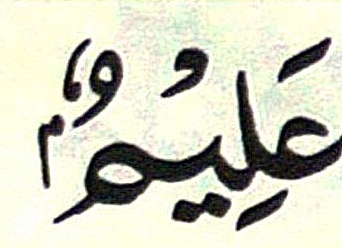 عَلِيْمٌۢ